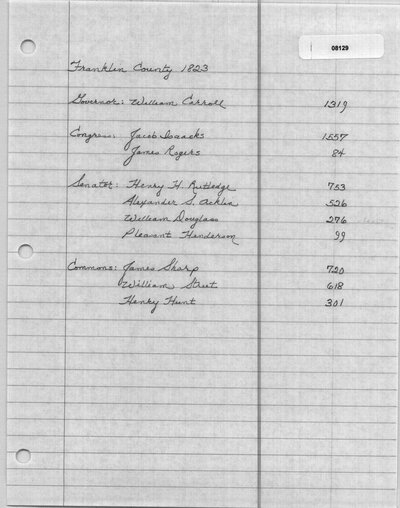 08129
Franklin County 1823
Governor: William Carroll 1319
Congress: Jacob Isaacks 1557
James Rogers 84
Senator: Henry H. Rutledge 753
Alexander S. Acklin 526
William Douglass 276
Pleasant Henderson 99
Commons: James Sharp 720
William Street 618
Henry Hunt 301